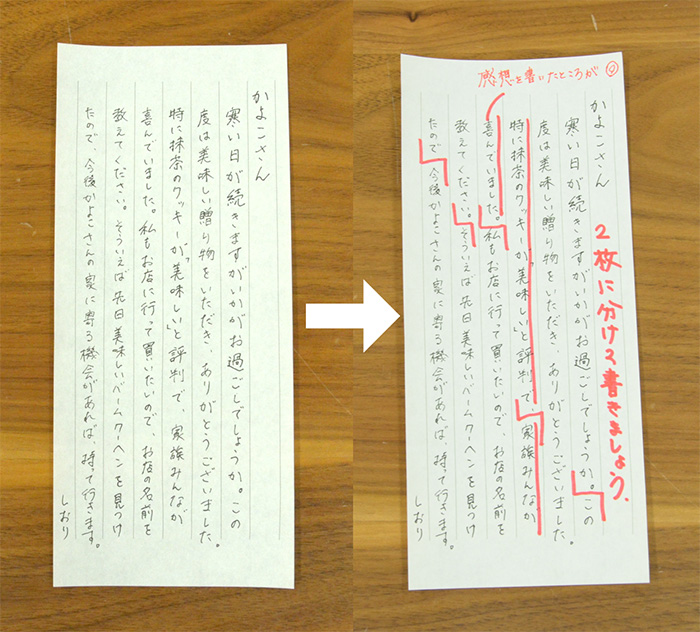 かよこさん
寒い日が続きますがいかがお過ごしでしょうか。この
度は美味しい贈り物をいただき、ありがとうございました。
特に抹茶のクッキーが「美味しい」と評判で、家族みんなが
喜んでいました。私もお店に行って買いたいので、お店の名前を
教えてください。そういえば先日美味しいバームクーヘンを見つけ
たので、今後かよこさんの家に寄る機会があれば、持って行きます。
しおり
感想を書いたところが◎
2枚に分けて書きましょう。
かよこさん
寒い日が続きますがいかがお過ごしでしょうか。この
度は美味しい贈り物をいただき、ありがとうございました。
特に抹茶のクッキーが「美味しい」と評判で、家族みんなが
喜んでいました。私もお店に行って買いたいので、お店の名前を
教えてください。そういえば先日美味しいバームクーヘンを見つけ
たので、今後かよこさんの家に寄る機会があれば、持って行きます。
しおり